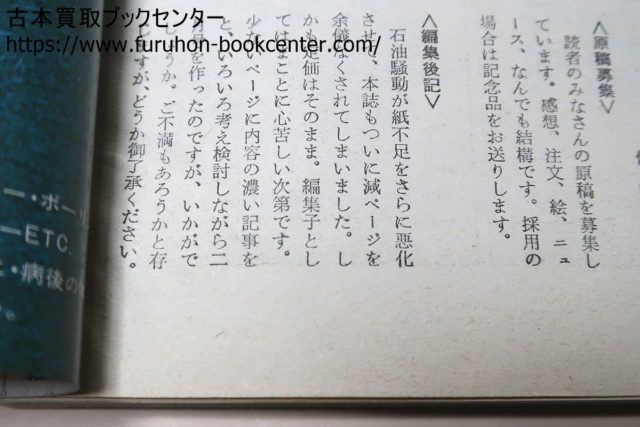 古本買取ブックセンター
https://www.furuhon-bookcenter.com/
＜原稿募集＞
読者のみなさんの原稿を募集し
ています。感想、注文、絵、ニュ
ース、なんでも結構です。採用の
場合は記念品をお送りします。
＜編集後記＞
石油騒動が紙不足をさらに悪化
させ、本誌もついに減ページを
余儀なくされてしまいました。し
かも定価はそのまま。編集子とし
てはまことに心苦しい次第です。
少ないページに内容の濃い記事を
と、いろいろ考え検討しながら二
月号を作ったのですが、いかがで
しょうか。ご不満もあろうかと存
じますが、どうか御了承ください。
ー・ボーリ
ーETC.
・病後の